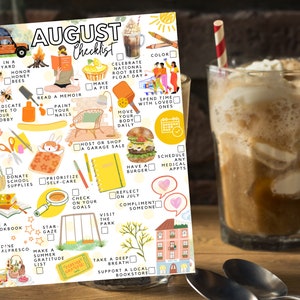 AUGUST
Checklist
IN A
YARD
HONOR
WORK
BEES
CELEBRATE
NATIONAL
ROOT BEER
FLOAT DAY
COLOR
READ A MEMOIR
MAKE
A PIE
PAINT
YOUR
NAILS
MOVE
YOUR
BODY
DAILY
SPEND TIME
WITH LOVED
ONES
HOST OR SHOP
A GARAGE SALE
SCHEDULE
ANY
MEDICAL
APPTS
HAVE A
BURGER
DONATE
SCHOOL
SUPPLIES
PRIORITIZE
SELF-CARE
CHECK
ON YOUR
GOALS
REFLECT
ON JULY
COMPLIMENT
SOMEONE
VISIT
THE
PARK
STAR
GAZE
MAKE A
SUMMER
GRATITUDE
LIST
TAKE A DEEP
BREATH
SUPPORT A LOCAL
BOOKSTORE